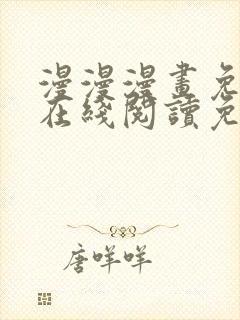 漫漫漫畫免
在綫閱讀免
唐咩咩